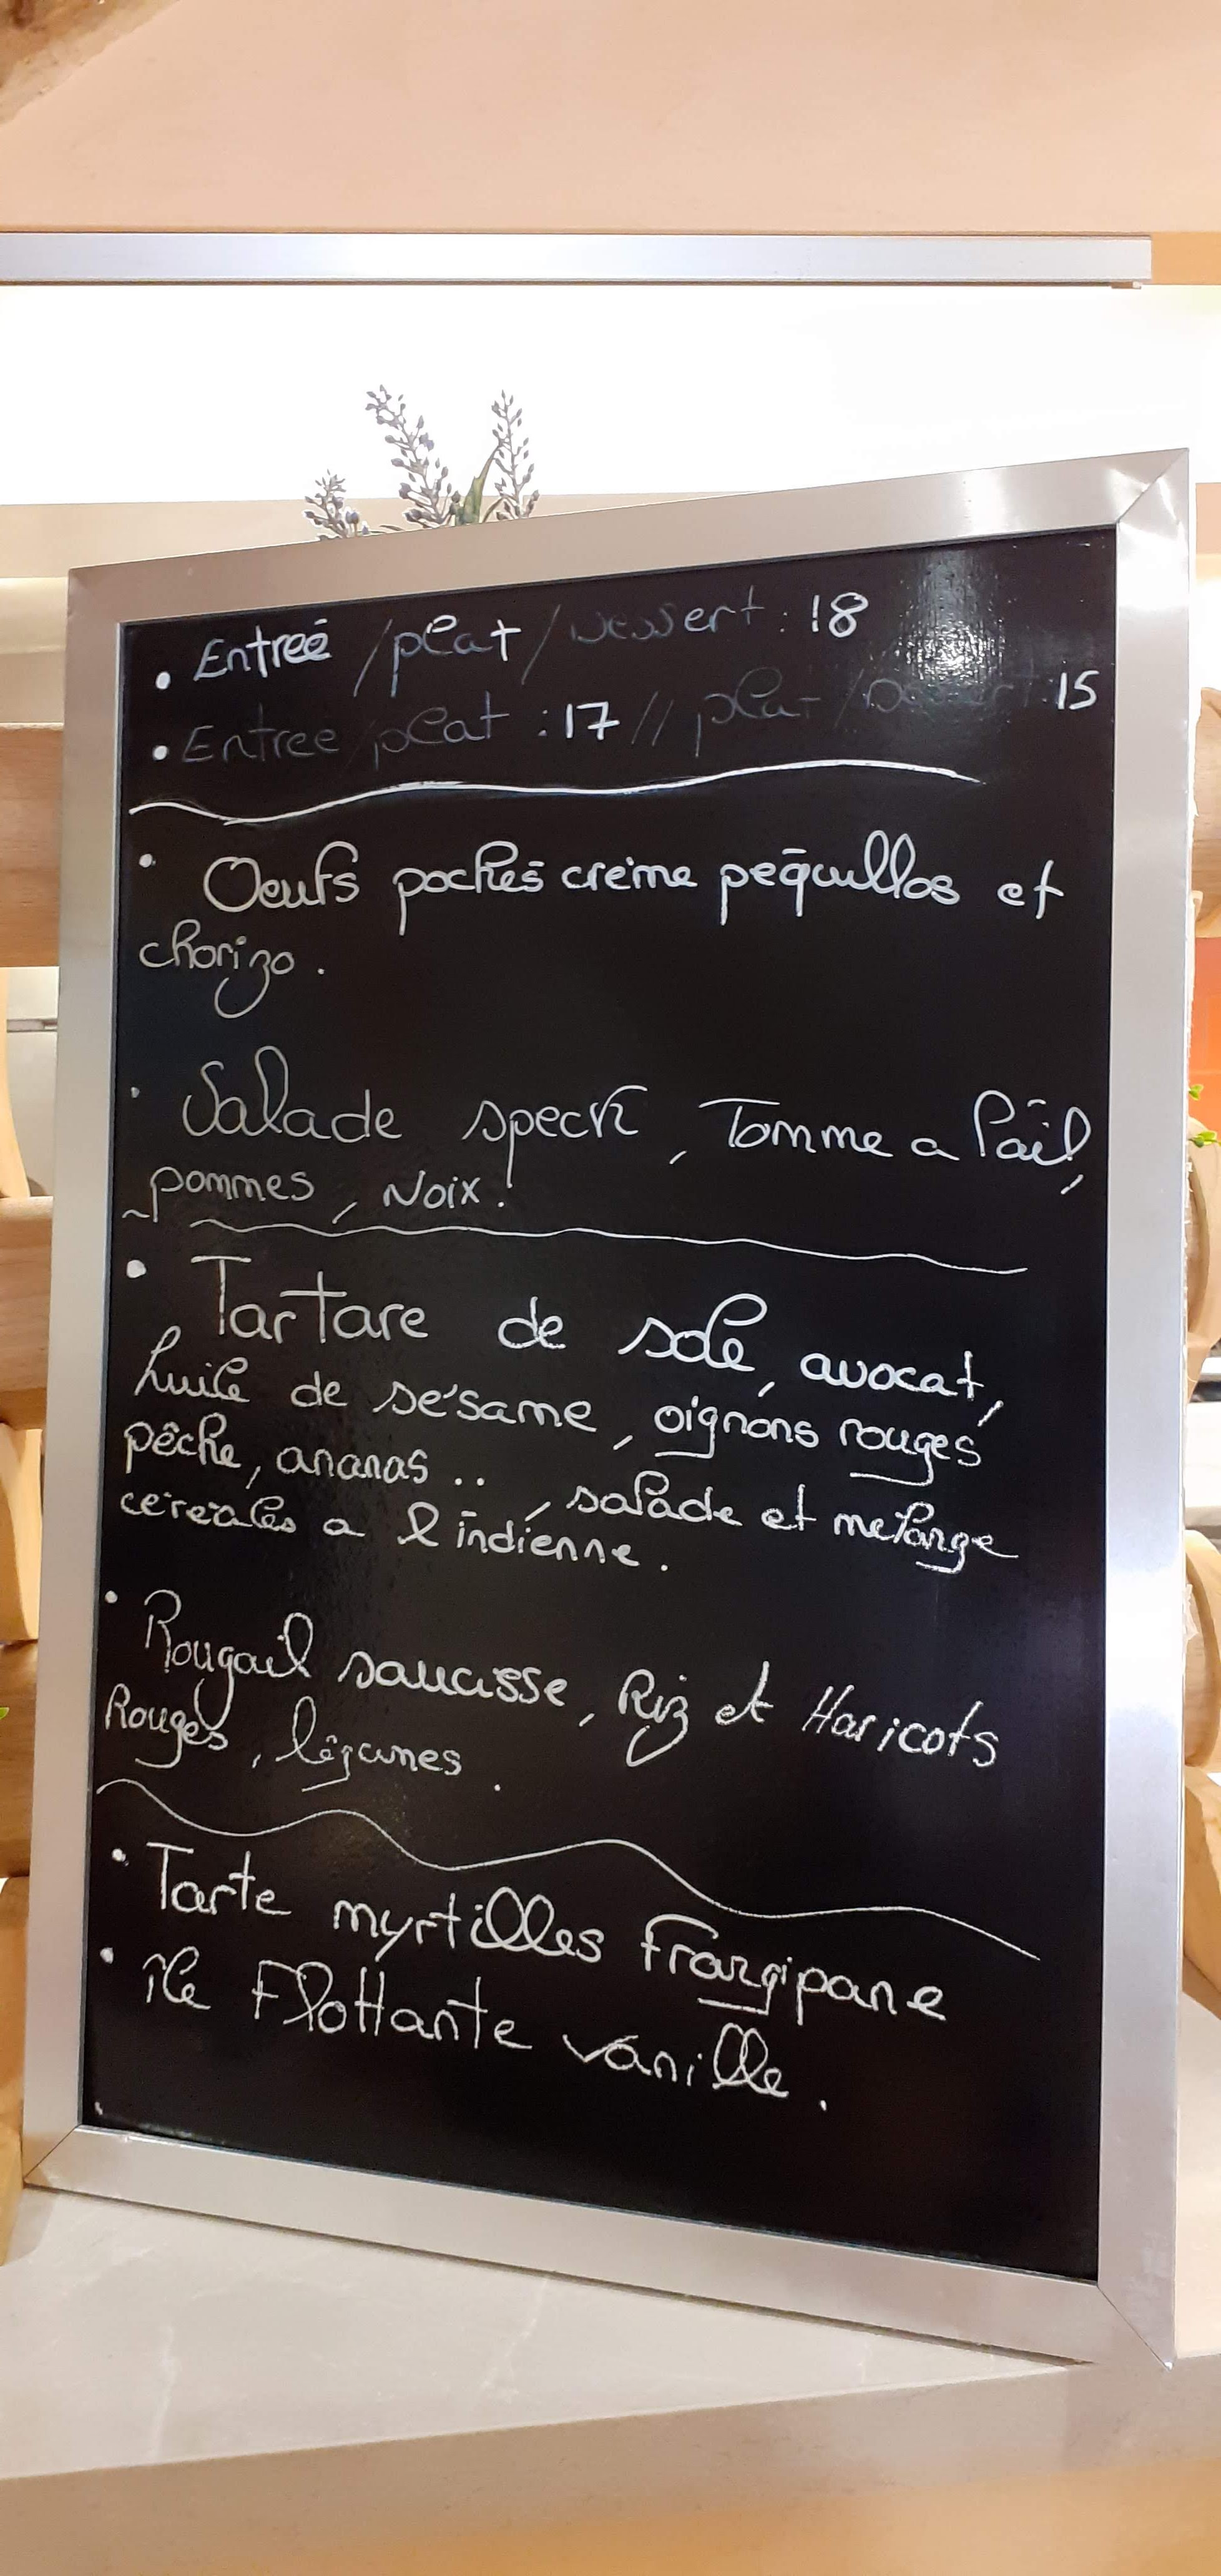 • Entreé / plat / Dessert : 18
• Entree / plat : 17 // plat / Dessert : 15
• Oeufs pochés crème péquillos et
chorizo .
• Salade speck , Tomme a l'ail,
pommes , Noix .
• Tartare de sole, avocat,
huile de sésame , oignons rouges
pêche, ananas .. , salade et mélange
céréales a l'indienne .
• Rougail saucisse, Riz et Haricots
Rouges , légumes .
• Tarte myrtilles Frangipane
• île Flottante vanille .